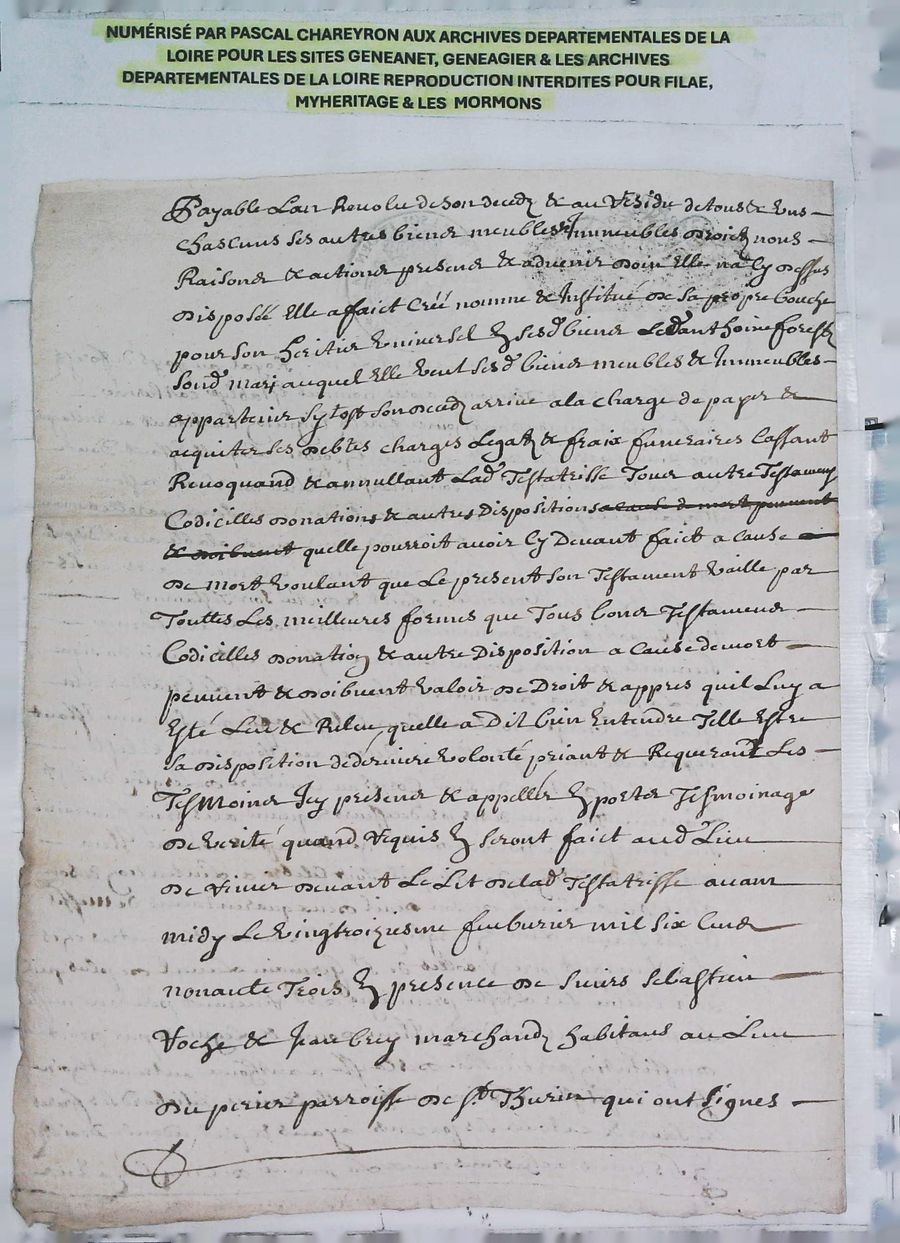 NUMÉRISÉ PAR PASCAL CHAREYRON AUX ARCHIVES DEPARTEMENTALES DE LA
LOIRE POUR LES SITES GENEANET, GENEAGIER & LES ARCHIVES
DEPARTEMENTALES DE LA LOIRE REPRODUCTION INTERDITES POUR FILAE,
MYHERITAGE & LES MORMONS
Payable Lan Revolu de son decedz & au Residu de tous & uns
chascuns ses autres biens meubles & Immeubles droictz noms
Raisons & actions presens & advenir doin Elle na Cy dessus
disposéé Elle a faict Créé nommé & Institué de sa propre bouche
pour son heritier universel En sesd biens Led anthoine forest
sond marj auquel Elle veut sesd biens meubles & Immeubles
appartenir sytost son decedz arrivé a la charge de payer &
acquiter ses debtes charges Legatz & fraix funeraires Cassant
Revoquand & annullant Lad Testatrisse Tous autre Testamens
Codicilles donations & autres Dispositions a cause de mort peuvent
& doibvent quelle pourroit avoir Cy Devant faict a Cause
de mort voulant que Le present son Testament vaille par
Touttes Les meilleures formes que Tous bons Testamens
Codicilles donation & autre Disposition a Cause de mort
peuvent & doibvent valoir de Droit & appres quil Luy a
Esté Leu & Releu quelle a Dit bien Entendre Telle Estre
sa disposition de derniere volonté priant & Requerant Les
Tesmoins Icy presens & appellés En porter Tesmoinage
de verité quand Requis En seront faict aud Lieu
de viver devant Le Lit de lad Testatrisse avant
midy Le vingtroiziesme feuburier mil six Cens
nonante Trois En presence de sieurs sebastien
& Jean marchandz habitans au Lieu
du perier parroisse de st Thurin qui ont signés